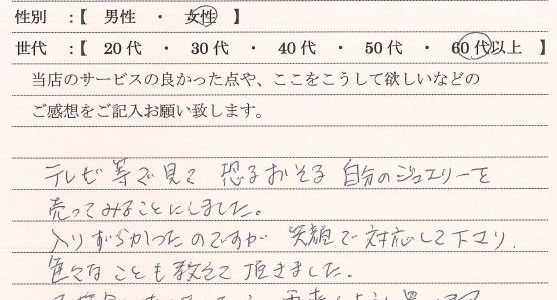 性別 :【 男性 ・ 女性 】
世代 :【 20代 ・ 30代 ・ 40代 ・ 50代 ・ 60代以上 】
当店のサービスの良かった点や、ここをこうして欲しいなどの
ご感想をご記入お願い致します。
テレビ等で見て 恐るおそる 自分のジュエリーを
売ってみることにしました。
入りずらかったのですが 笑顔で対応して下さり、
色々なことも教えて頂きました。